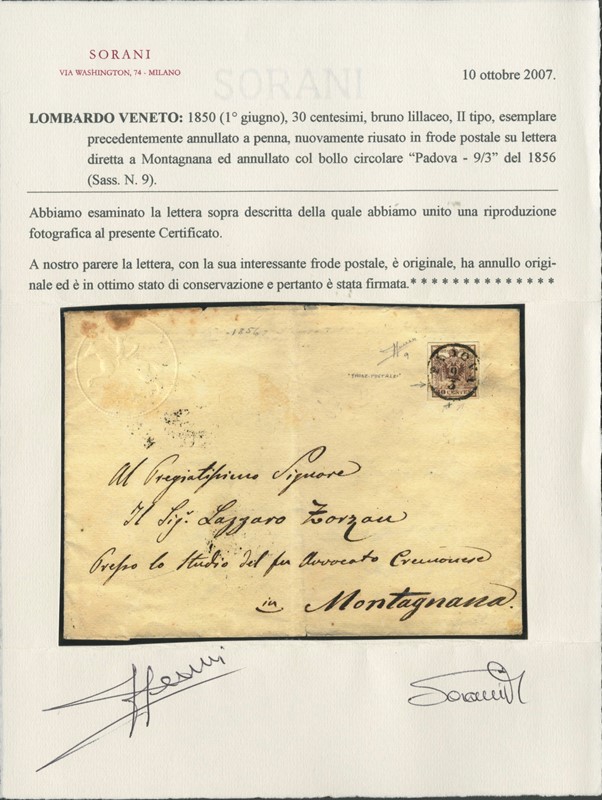 SORANI
VIA WASHINGTON, 74 - MILANO
SORANI
10 ottobre 2007.
LOMBARDO VENETO: 1850 (1° giugno), 30 centesimi, bruno lillaceo, II tipo, esemplare
precedentemente annullato a penna, nuovamente riusato in frode postale su lettera
diretta a Montagnana ed annullato col bollo circolare “Padova - 9/3” del 1856
(Sass. N. 9).
Abbiamo esaminato la lettera sopra descritta della quale abbiamo unito una riproduzione
fotografica al presente Certificato.
A nostro parere la lettera, con la sua interessante frode postale, è originale, ha annullo origi-
nale ed è in ottimo stato di conservazione e pertanto è stata firmata.* * * * * * * * * * * * * *
1856
"FRODE POSTALE"
PADOVA
Al Pregiatissimo Signore
Il Sigr. Lazzaro Zorzan
Presso lo Studio del fu Avvocato Cremonese
in Montagnana.
Sorani